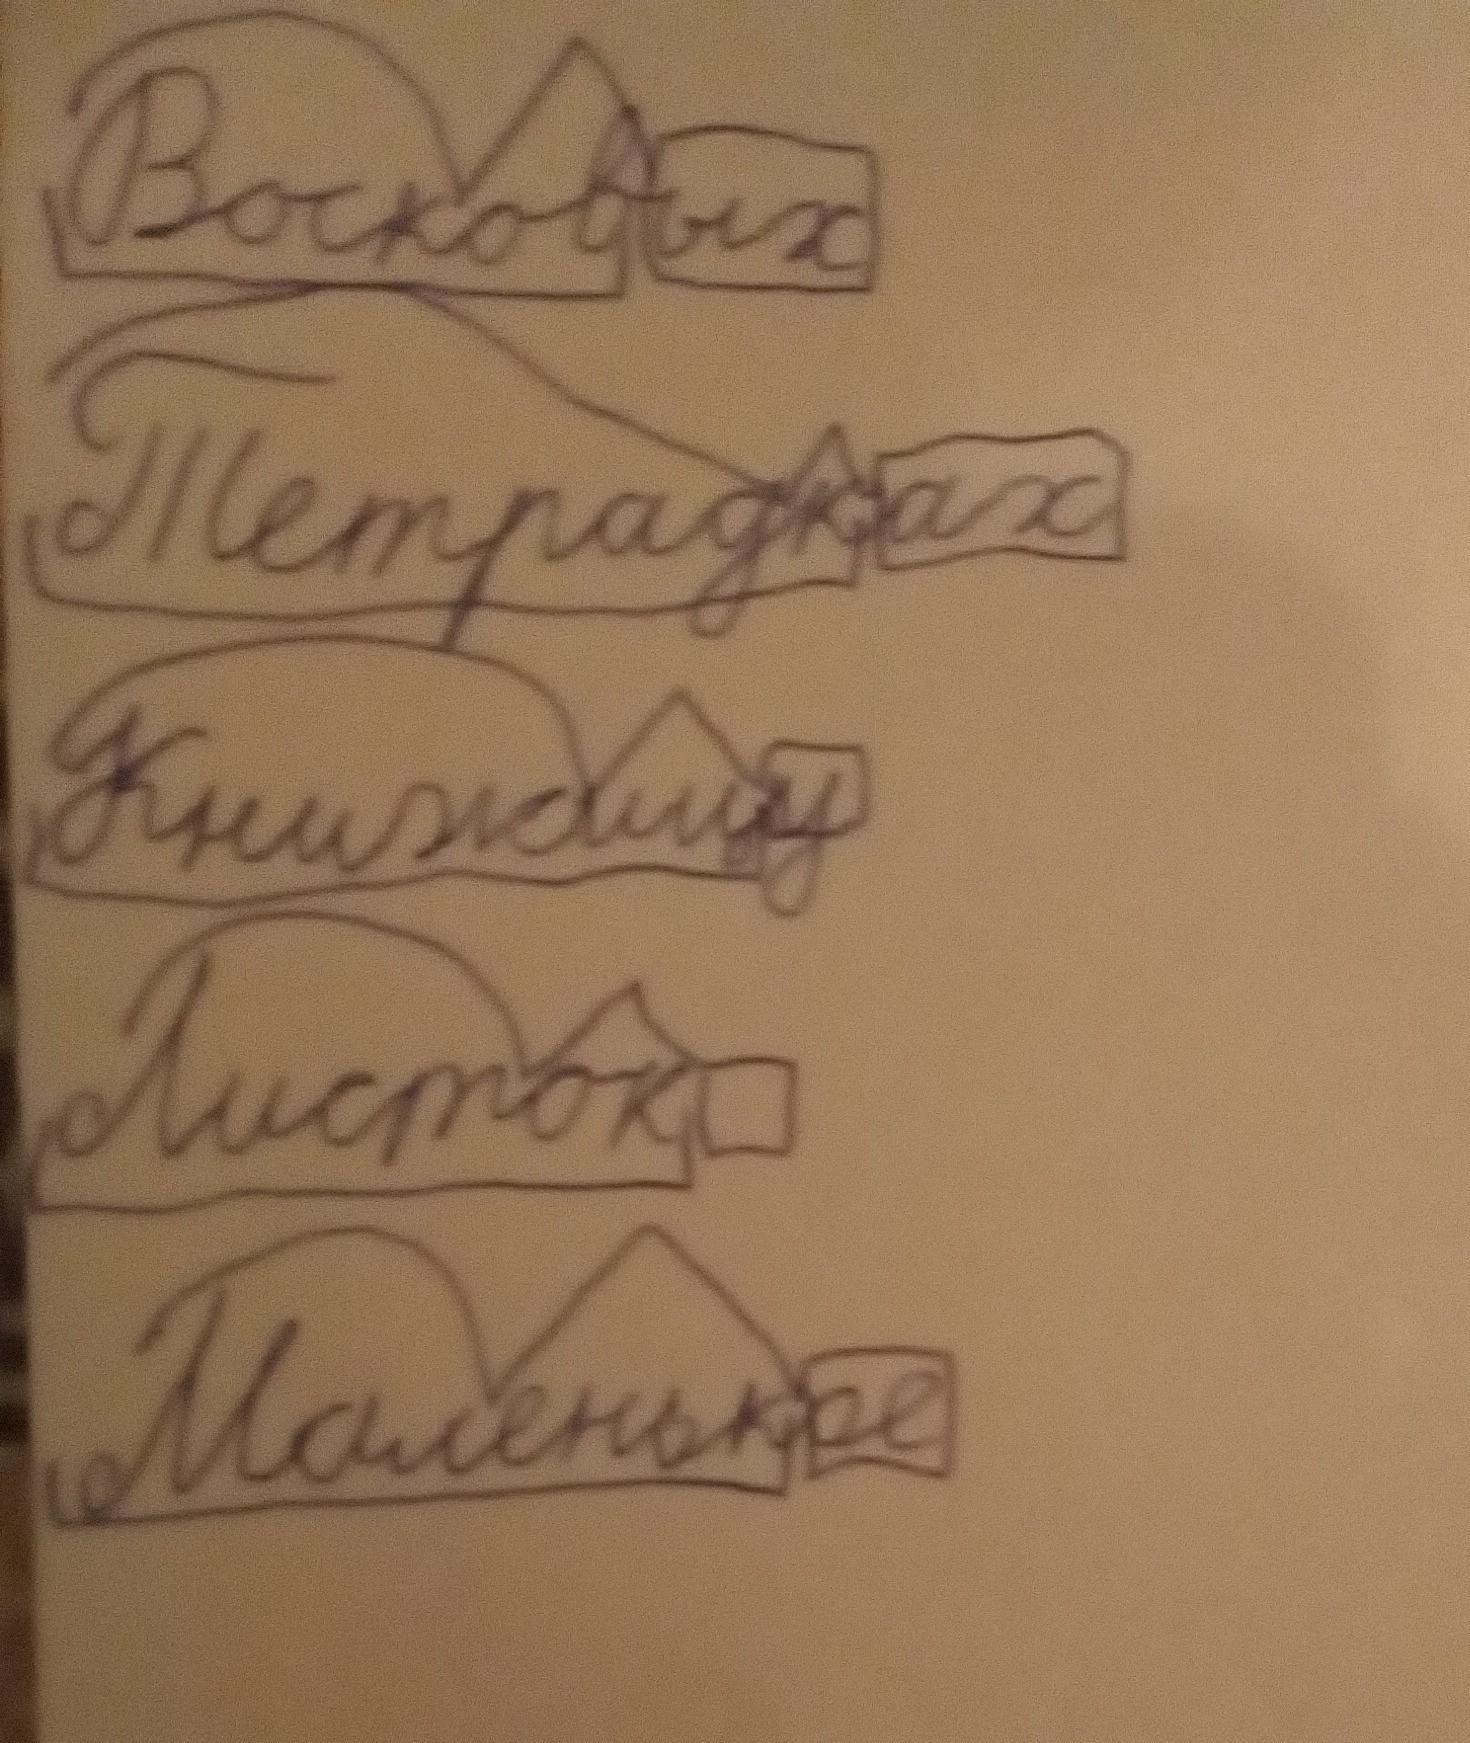 Восковых
Тетрадках
Книжищу
Листок
Маленькое